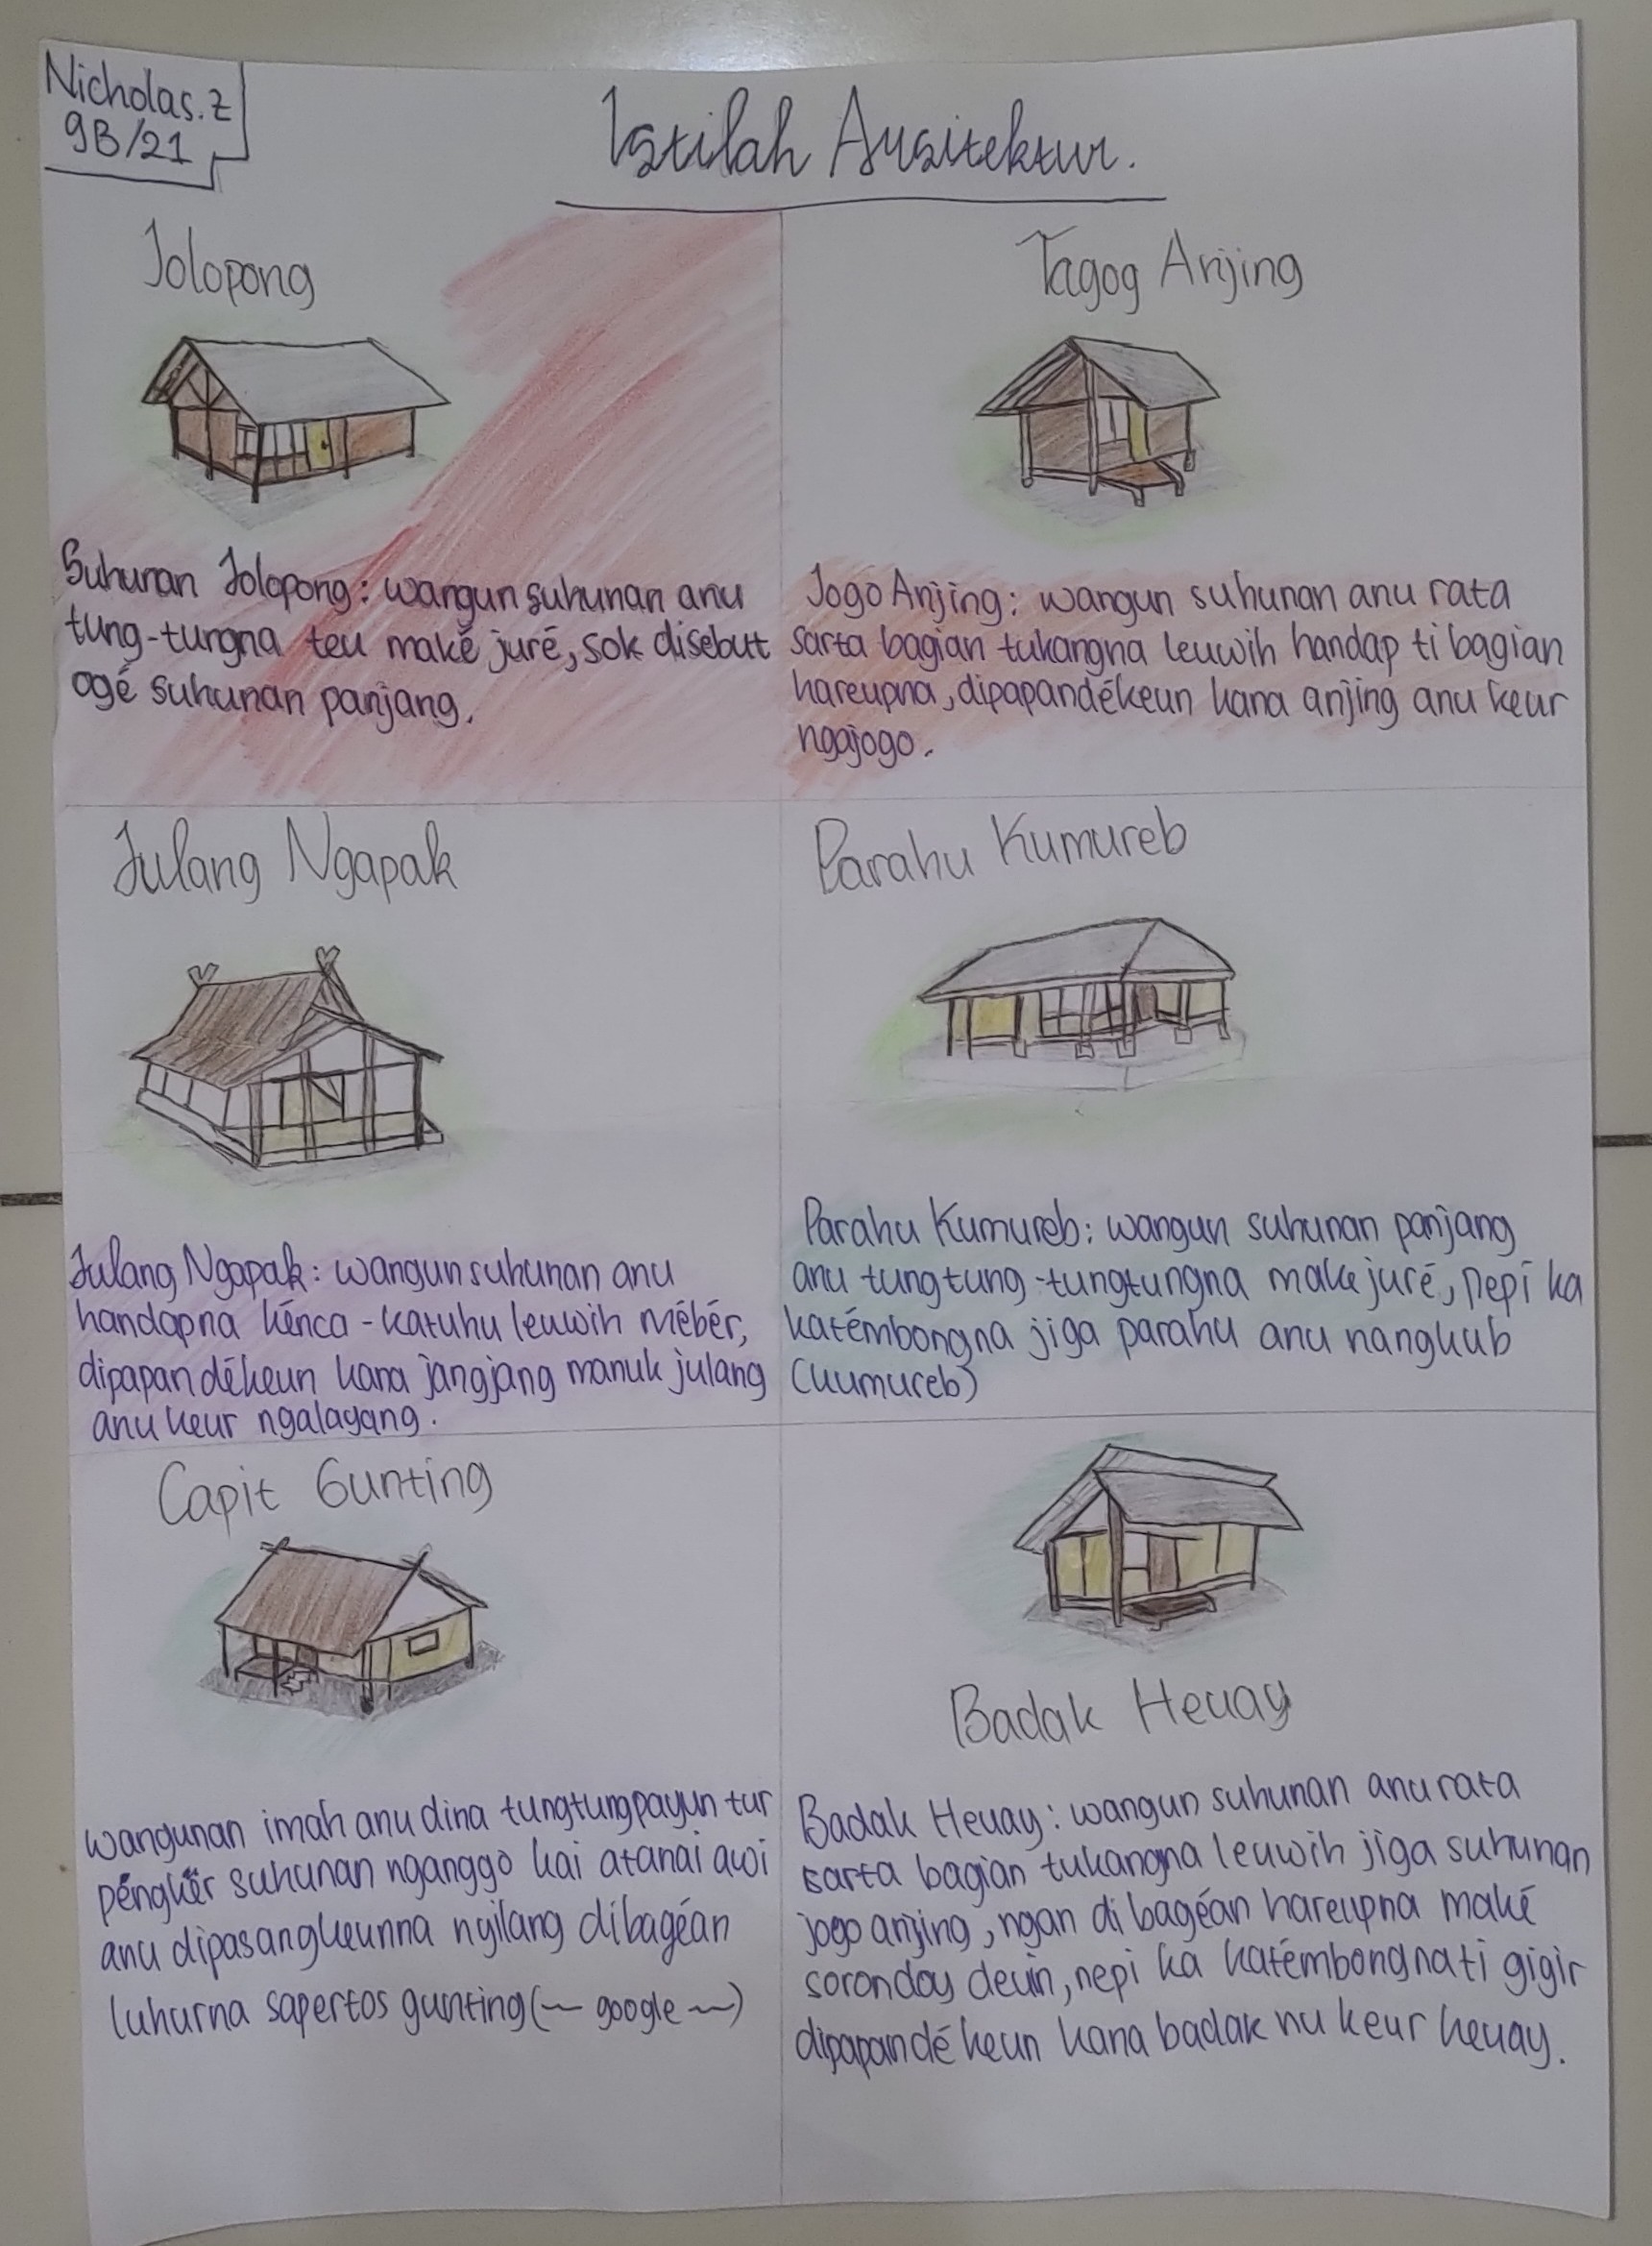 Nicholas.Z
9B/21
Istilah Arsitektur.
Jolopong
Suhunan Jolopong: wangun suhunan anu
tung-tungna teu maké juré, sok disebut
ogé suhunan panjang.
Tagog Anjing
Jogo Anjing: wangun suhunan anu rata
sarta bagian tukangna leuwih handap ti bagian
hareupna, dipapandékeun kana anjing anu keur
ngajogo.
Julang Ngapak
Julang Ngapak: wangun suhunan anu
handapna kénca-katuhu leuwih mébér,
dipapandékeun kana jangjang manuk julang
anu keur ngalayang.
Parahu Kumureb
Parahu Kumureb: wangun suhunan panjang
anu tungtung-tungtungna make juré, nepi ka
katémbongna jiga parahu anu nangkub
(kumureb)
Capit Gunting
wangunan imah anu dina tungtung payun tur
péngkér suhunan nganggo kai atanai awi
anu dipasangkeunna nyilang dibagéan
luhurna sapertos gunting (~ google ~)
Badak Heuay
Badak Heuay: wangun suhunan anu rata
sarta bagian tukangna leuwih jiga suhunan
jogo anjing, ngan di bagéan hareupna maké
sorondoy deuin, nepi ka katémbongna ti gigir
dipapandékeun kana badak nu keur heuay.